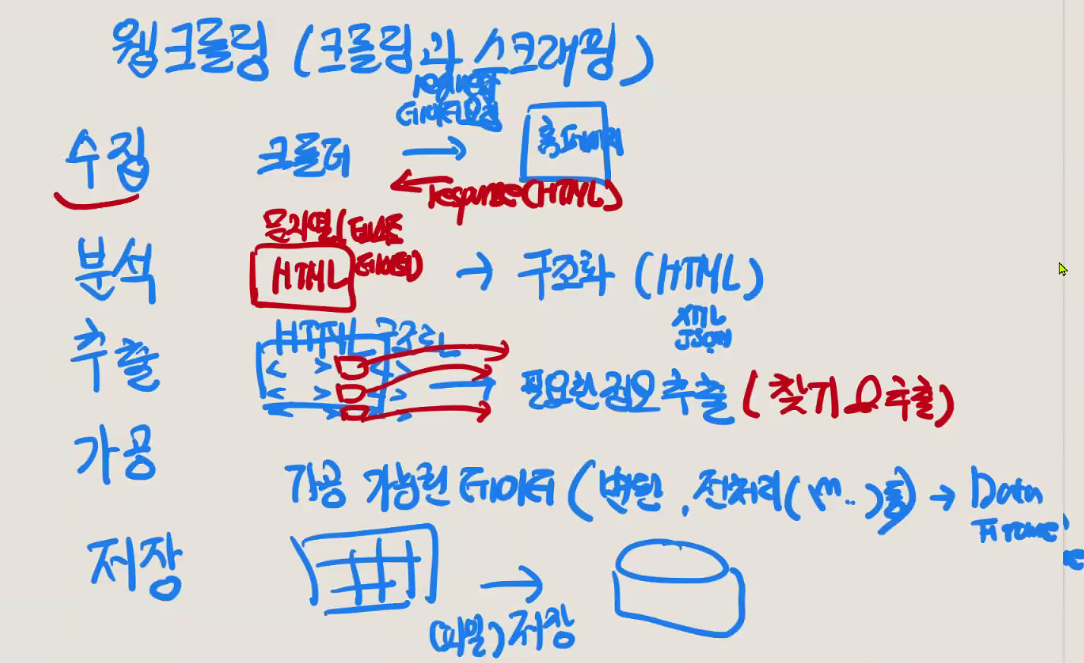 웹크롤링 (크롤링과 스크래핑)
request
데이터요청
수집 크롤러 → 홈페이지
← response(HTML)
문자열(텍스트
데이터)
분석 HTML → 구조화 (HTML)
XML
JSON
HTML 구조화
추출 < > < >
< > < > → 필요한정보추출 (찾기 & 추출)
< >
가공
가공 가능한 데이터 (변환, 전처리( ..)등) → Data
Frame
저장 →
(파일)저장